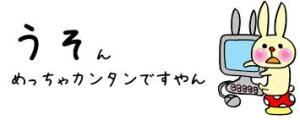 うそん
めっちゃカンタンですやん